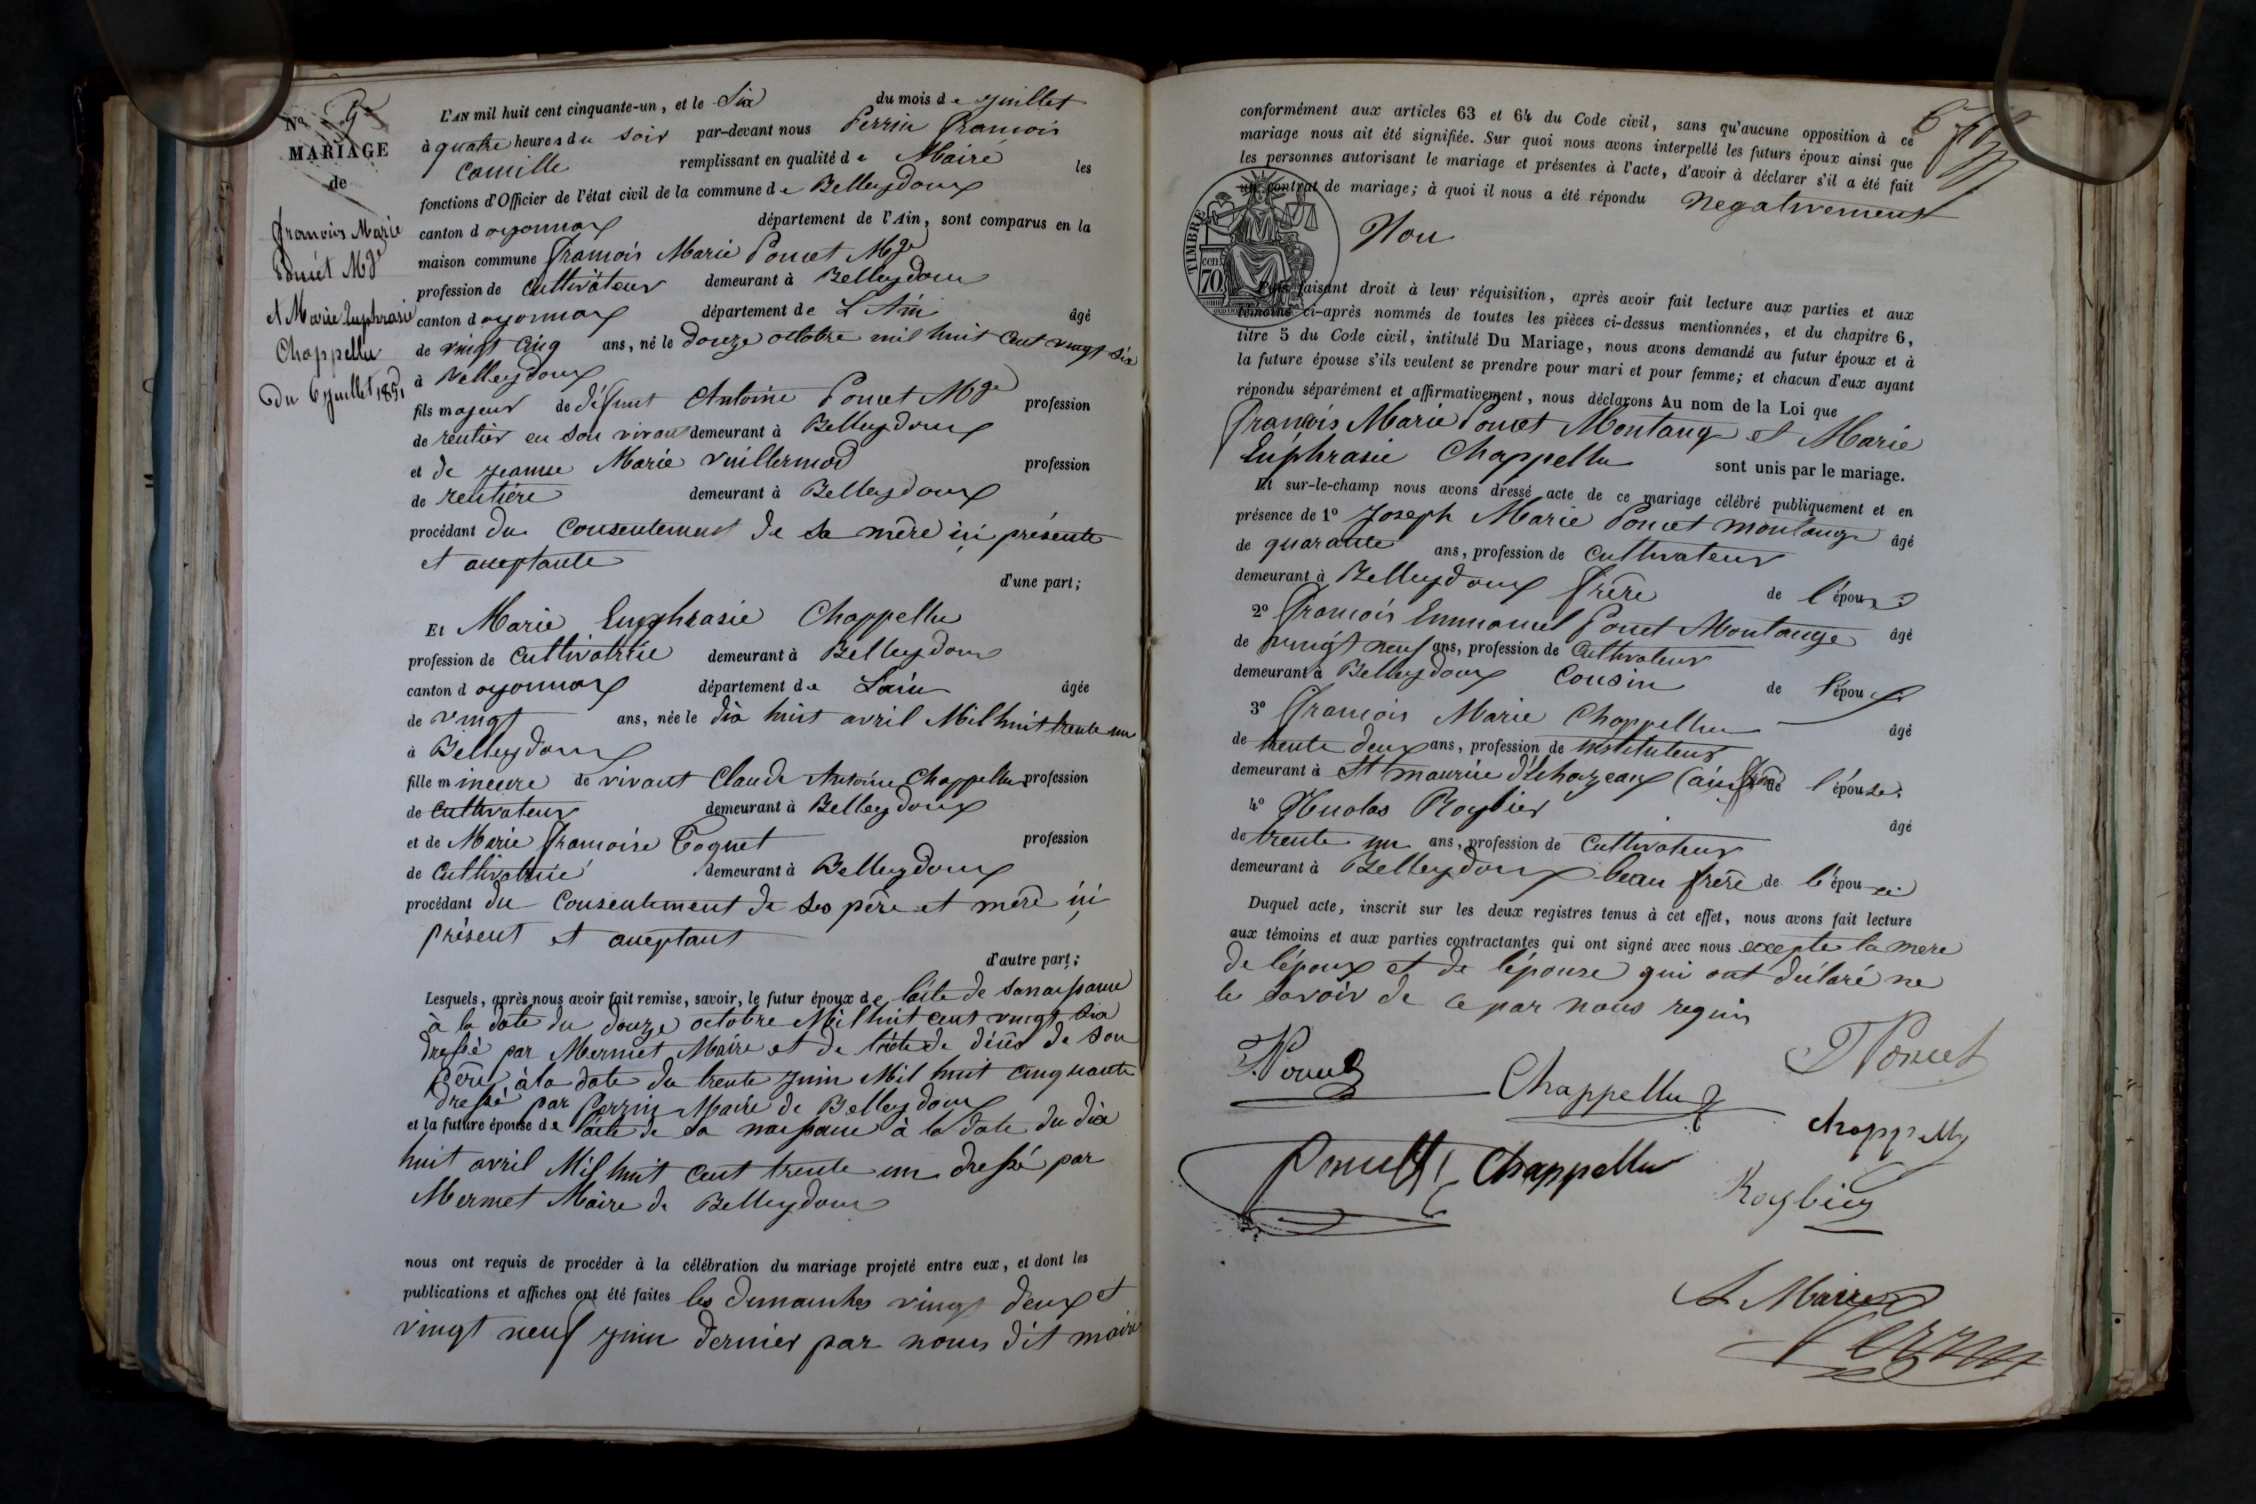 Nº
MARIAGE
de
François Marie
Poncet Mge
et Marie Euphrasie
Chappellu
du 6 juillet 1851
L'AN mil huit cent cinquante-un, et le Six du mois de juillet
à quatre heures du soir par-devant nous Perrin François
Camille remplissant en qualité de Maire les
fonctions d'Officier de l'état civil de la commune de Belleydoux
canton d oyonnax département de l'Ain, sont comparus en la
maison commune François Marie Poncet Mge
profession de cultivateur demeurant à Belleydoux
canton d oyonnax département de L'Ain âgé
de vingt cinq ans, né le douze octobre mil huit cent vingt six
à Belleydoux
fils majeur de défunt Antoine Poncet Mge profession
de rentier en son vivant demeurant à Belleydoux
et de jeanne Marie vuillermoz profession
de rentière demeurant à Belleydoux
procédant du consentement de sa mère ici présente
et acceptante
d'une part;
Et Marie Euphrasie Chappellu
profession de cultivatrice demeurant à Belleydoux
canton d oyonnax département de Lain âgée
de vingt ans, née le dix huit avril Mil huit trente un
à Belleydoux
fille mineure de vivant Claude Antoine Chappellu profession
de cultivateur demeurant à Belleydoux
et de Marie françoise Coquet profession
de cultivatrice demeurant à Belleydoux
procédant du consentement de ses père et mère ici
présent et acceptant
d'autre part;
Lesquels, après nous avoir fait remise, savoir, le futur époux de l'acte de sa naissance
à la date du douze octobre Mil huit cent vingt six
dressé par Mermet Maire et de l'acte de décès de son
père, à la date du trente juin Mil huit cinquante
dressé par Perrin Maire de Belleydoux
et la future épouse de l'acte de sa naissance à la date du dix
huit avril Mil huit cent trente un dressé par
Mermet Maire de Belleydoux
nous ont requis de procéder à la célébration du mariage projeté entre eux, et dont les
publications et affiches ont été faites les dimanches vingt deux et
vingt neuf juin dernier par nous dit maire
conformément aux articles 63 et 64 du Code civil, sans qu'aucune opposition à ce
mariage nous ait été signifiée. Sur quoi nous avons interpellé les futurs époux ainsi que
les personnes autorisant le mariage et présentes à l'acte, d'avoir à déclarer s'il a été fait
un contrat de mariage; à quoi il nous a été répondu negativement
Non
TIMBRE
70 cen.
Puis faisant droit à leur réquisition, après avoir fait lecture aux parties et aux
témoins ci-après nommés de toutes les pièces ci-dessus mentionnées, et du chapitre 6,
titre 5 du Code civil, intitulé Du Mariage, nous avons demandé au futur époux et à
la future épouse s'ils veulent se prendre pour mari et pour femme; et chacun d'eux ayant
répondu séparément et affirmativement, nous déclarons Au nom de la Loi que
François Marie Poncet Montang et Marie
Euphrasie Chappellu sont unis par le mariage.
Et sur-le-champ nous avons dressé acte de ce mariage célébré publiquement et en
présence de 1º Joseph Marie Poncet montange âgé
de quarante ans, profession de cultivateur
demeurant à Belleydoux frère de l'époux
2º François Emmanuel Poncet Montange âgé
de vingt neuf ans, profession de Cultivateur
demeurant à Belleydoux Cousin de l'époux
3º François Marie Chappellu âgé
de trente deux ans, profession de instituteur
demeurant à St maurice d'échazeaux (ain) frère de l'épouse.
4º Nicolas Roybier âgé
de trente un ans, profession de cultivateur
demeurant à Belleydoux beau frère de l'épouse
Duquel acte, inscrit sur les deux registres tenus à cet effet, nous avons fait lecture
aux témoins et aux parties contractantes qui ont signé avec nous excepte la mere
de l'époux et de l'épouse qui ont déclaré ne
le savoir de ce par nous requis
Poncet
Chappellu
Poncet
chappellu
Poncet
Chappellu
Roybier
Le Maire
Perrin